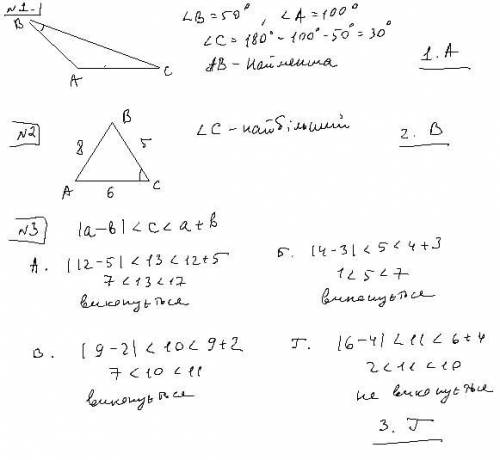 №1
∠B=50°, ∠A=100°
∠C=180°-100°-50°=30°
AB - найменша
1. A
B
A
C
№2
∠C - найбільший
2. B
B
8
5
A
6
C
№3
|a-b|<c<a+b
А. |12-5|<13<12+5
7<13<17
виконується
Б. |4-3|<5<4+3
1<5<7
виконується
В. |9-2|<10<9+2
7<10<11
виконується
Г. |6-4|<11<6+4
2<11<10
не виконується
3. Г